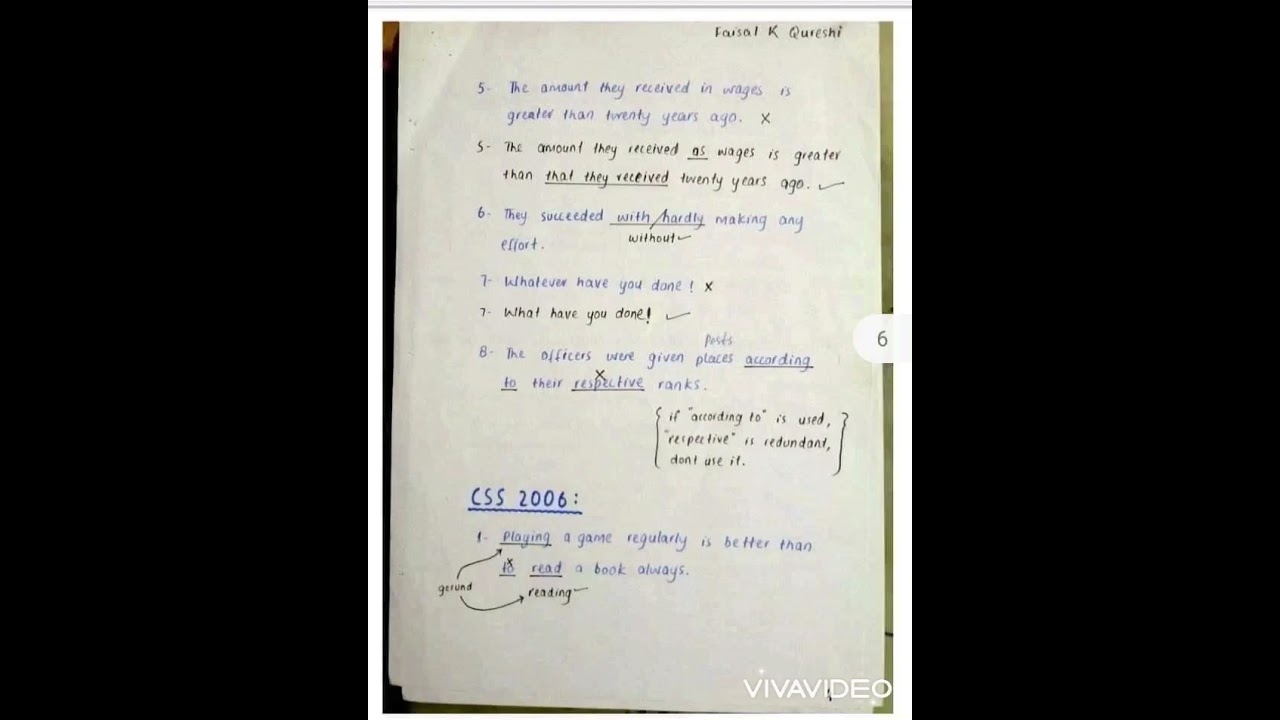 Faisal K Qureshi
5- The amount they received in wages is
greater than twenty years ago. x
5- The amount they received as wages is greater
than that they received twenty years ago. ✓
6- They succeeded with/hardly making any
without ✓
effort.
7- Whatever have you done! x
7- What have you done! ✓
posts
8- The officers were given places according
x
to their respective ranks.
{ if "according to" is used, }
"respective" is redundant,
dont use it.
6
CSS 2006:
1- Playing a game regularly is better than
x
to read a book always.
gerund
reading ✓
VIVAVIDEO